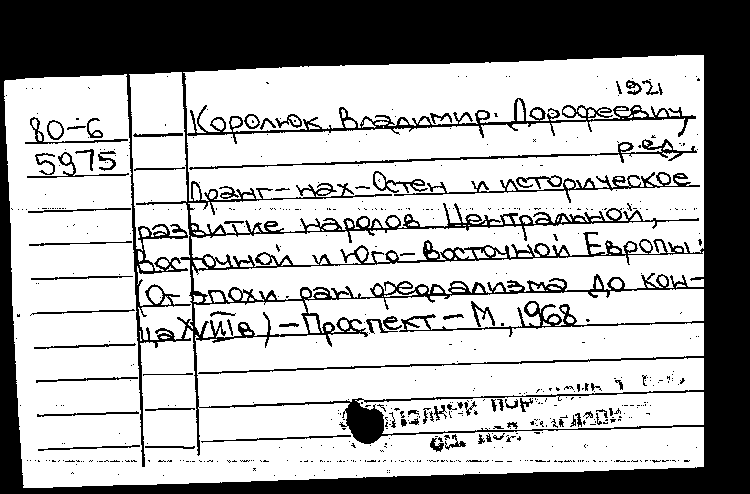 1921
80-6
Королюк, Владимир Дорофеевич,
5975
ред.
Дранг-нах-Остен и историческое
развитие народов Центральной,
Восточной и Юго-Восточной Европы:
(От эпохи ран. феодализма до кон-
ца XVIII в) - Проспект. - М., 1968.
Полный
см. под заглави